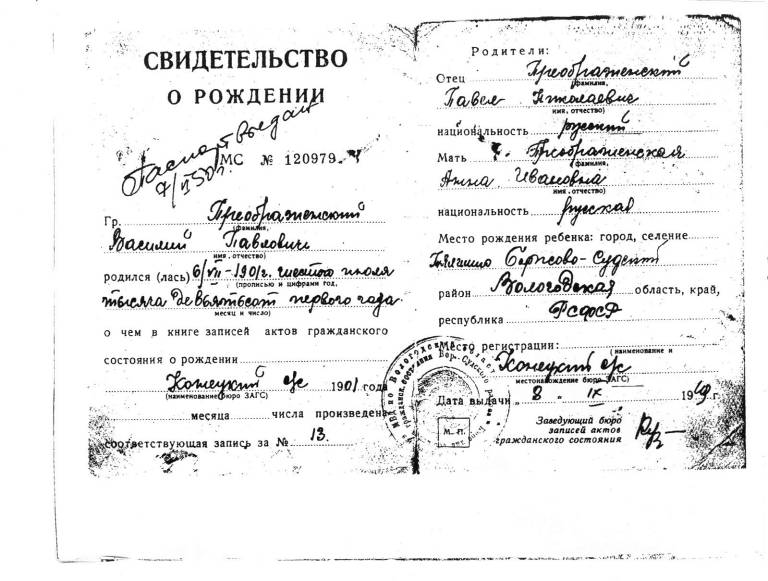 СВИДЕТЕЛЬСТВО
О РОЖДЕНИИ
Паспорт выдан
МС № 120979
Гр. Преображенский
(фамилия,
Василий Павлович
имя, отчество)
родился (лась) 6/VII-1901г. шестого июля
(прописью и цифрами год,
тысяча девятьсот первого года
месяц и число)
о чем в книге записей актов гражданского
состояния о рождении
Конецкий с/с 1901 года
(наименование бюро ЗАГС)
месяца числа произведена
соответствующая запись за № 13.
Родители:
Отец Преображенский
(фамилия,
Павел Николаевич
имя, отчество)
национальность русский
Мать Преображенская
(фамилия,
Анна Ивановна
имя, отчество)
национальность русская
Место рождения ребенка: город, селение
Борисово-Судский
район Вологодская область, край,
республика РСФСР
Место регистрации:
(наименование и
Конецкий с/с
местонахождение бюро ЗАГС)
Дата выдачи „ 8 " IX 1949 г.
М. П.
Заведующий бюро
записей актов
гражданского состояния